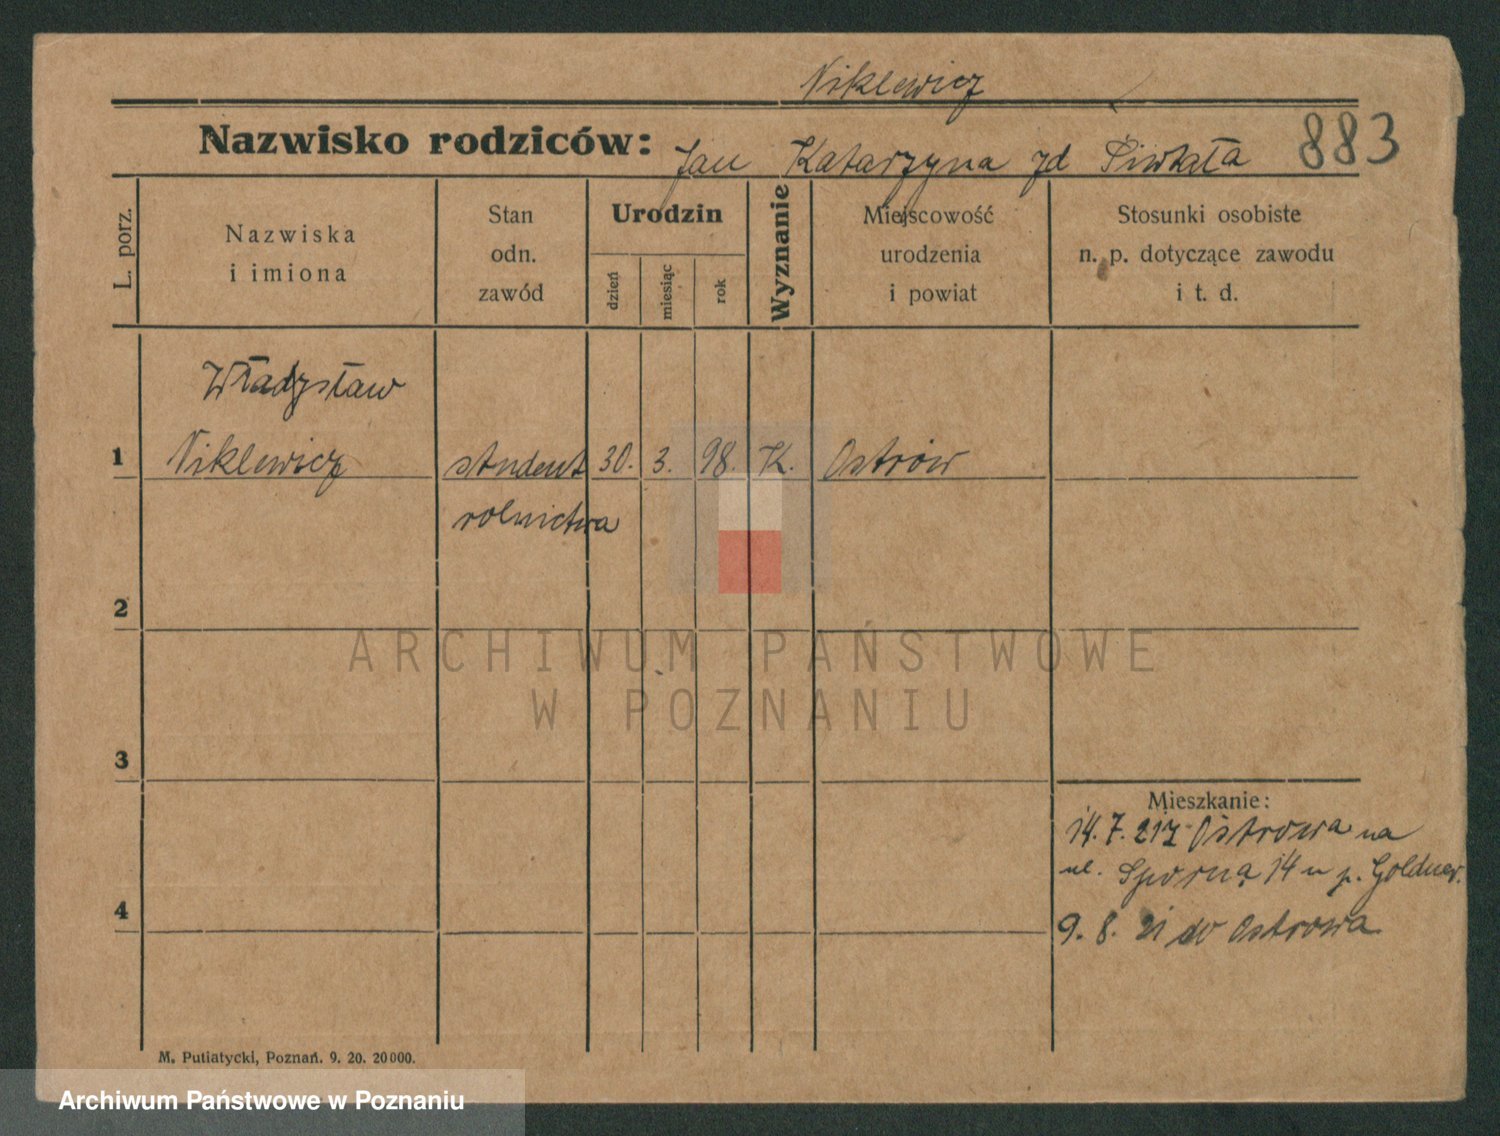 Niklewicz
Nazwisko rodziców: Jan Katarzyna zd Śiwkała 883
L. porz.
Nazwiska
i imiona
Stan
odn.
zawód
Urodzin
dzień
miesiąc
rok
Wyznanie
Miejscowość
urodzenia
i powiat
Stosunki osobiste
n. p. dotyczące zawodu
i t. d.
Władysław
1 Niklewicz student 30. 3. 98. K. Ostrów
rolnictwa
2
ARCHIWUM PAŃSTWOWE
W POZNANIU
3
Mieszkanie:
14. 7. 21 z Ostrowa na
ul. Sporną 14 u p. Goldner.
4
9. 8. 21 do Ostrowa
M. Putiatycki, Poznań. 9. 20. 20000.
Archiwum Państwowe w Poznaniu